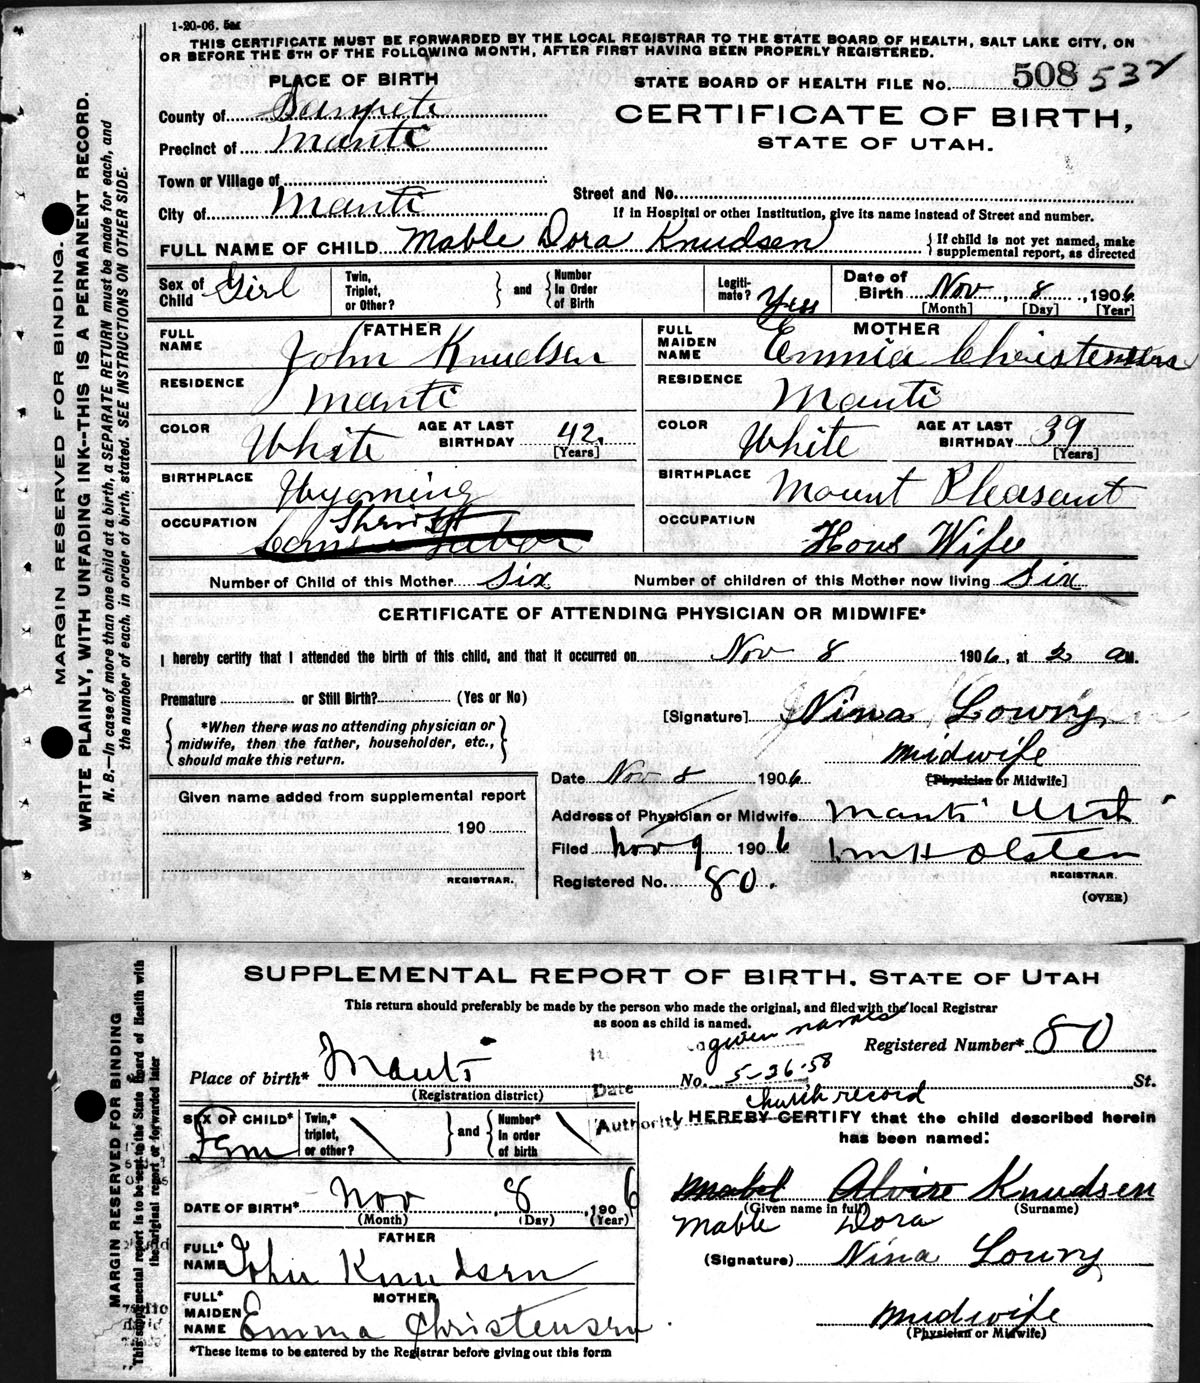 1-20-06.
THIS CERTIFICATE MUST BE FORWARDED BY THE LOCAL REGISTRAR TO THE STATE BOARD OF HEALTH, SALT LAKE CITY, ON
OR BEFORE THE 5TH OF THE FOLLOWING MONTH, AFTER FIRST HAVING BEEN PROPERLY REGISTERED.
MARGIN RESERVED FOR BINDING.
WRITE PLAINLY, WITH UNFADING INK--THIS IS A PERMANENT RECORD.
N. B.--In case of more than one child at a birth, a SEPARATE RETURN must be made for each, and
the number of each, in order of birth, stated. SEE INSTRUCTIONS ON OTHER SIDE.
PLACE OF BIRTH
STATE BOARD OF HEALTH FILE No. 508 532
County of Sanpete
CERTIFICATE OF BIRTH,
Precinct of Manti
STATE OF UTAH.
Town or Village of
Street and No.
City of Manti
If in Hospital or other Institution, give its name instead of Street and number.
FULL NAME OF CHILD Mable Dora Knudsen
If child is not yet named, make
supplemental report, as directed
Sex of Child Girl
Twin, Triplet, or Other?
and
Number in Order of Birth
Legiti-mate? Yess
Date of Birth Nov 8, 1906
[Month] [Day] [Year]
FATHER
FULL NAME John Knudsen
RESIDENCE Manti
COLOR White AGE AT LAST BIRTHDAY 42.
[Years]
BIRTHPLACE Wyoming
OCCUPATION Sheriff
MOTHER
FULL MAIDEN NAME Emmia
RESIDENCE Manti
COLOR White AGE AT LAST BIRTHDAY 39
[Years]
BIRTHPLACE Mount Pleasant
OCCUPATION Hous Wife
Number of Child of this Mother Six Number of children of this Mother now living Six
CERTIFICATE OF ATTENDING PHYSICIAN OR MIDWIFE*
I hereby certify that I attended the birth of this child, and that it occurred on Nov 8 1906, at 2 a M.
Premature or Still Birth? (Yes or No)
*When there was no attending physician or
midwife, then the father, householder, etc.,
should make this return.
[Signature] Nina Lowry
midwife
[Physician or Midwife]
Date Nov 8 1906
Given name added from supplemental report
190
REGISTRAR.
Address of Physician or Midwife Manti Utah
Filed Nov 9 1906 Wm H Olsten
REGISTRAR.
Registered No. 80.
(OVER)
SUPPLEMENTAL REPORT OF BIRTH, STATE OF UTAH
This return should preferably be made by the person who made the original, and filed with the local Registrar
as soon as child is named.
MARGIN RESERVED FOR BINDING
This supplemental report is to be sent to the State Board of Health with
the original report or forwarded later
given names
Registered Number* 80
Place of birth* Manti
(Registration district)
Date 5-26-58
No. St.
Authority church record
SEX OF CHILD* Fem
Twin,* triplet, or other?
and
Number* in order of birth
I HEREBY CERTIFY that the child described herein
has been named:
DATE OF BIRTH* Nov 8, 1906
(Month) (Day) (Year)
Mabel Alvire Knudsen
(Given name in full) (Surname)
Mable Dora
FATHER
FULL* NAME John Knudsen
(Signature) Nina Lowry
MOTHER
FULL* MAIDEN NAME Emma Christensen
midwife
(Physician or Midwife)
*These items to be entered by the Registrar before giving out this form